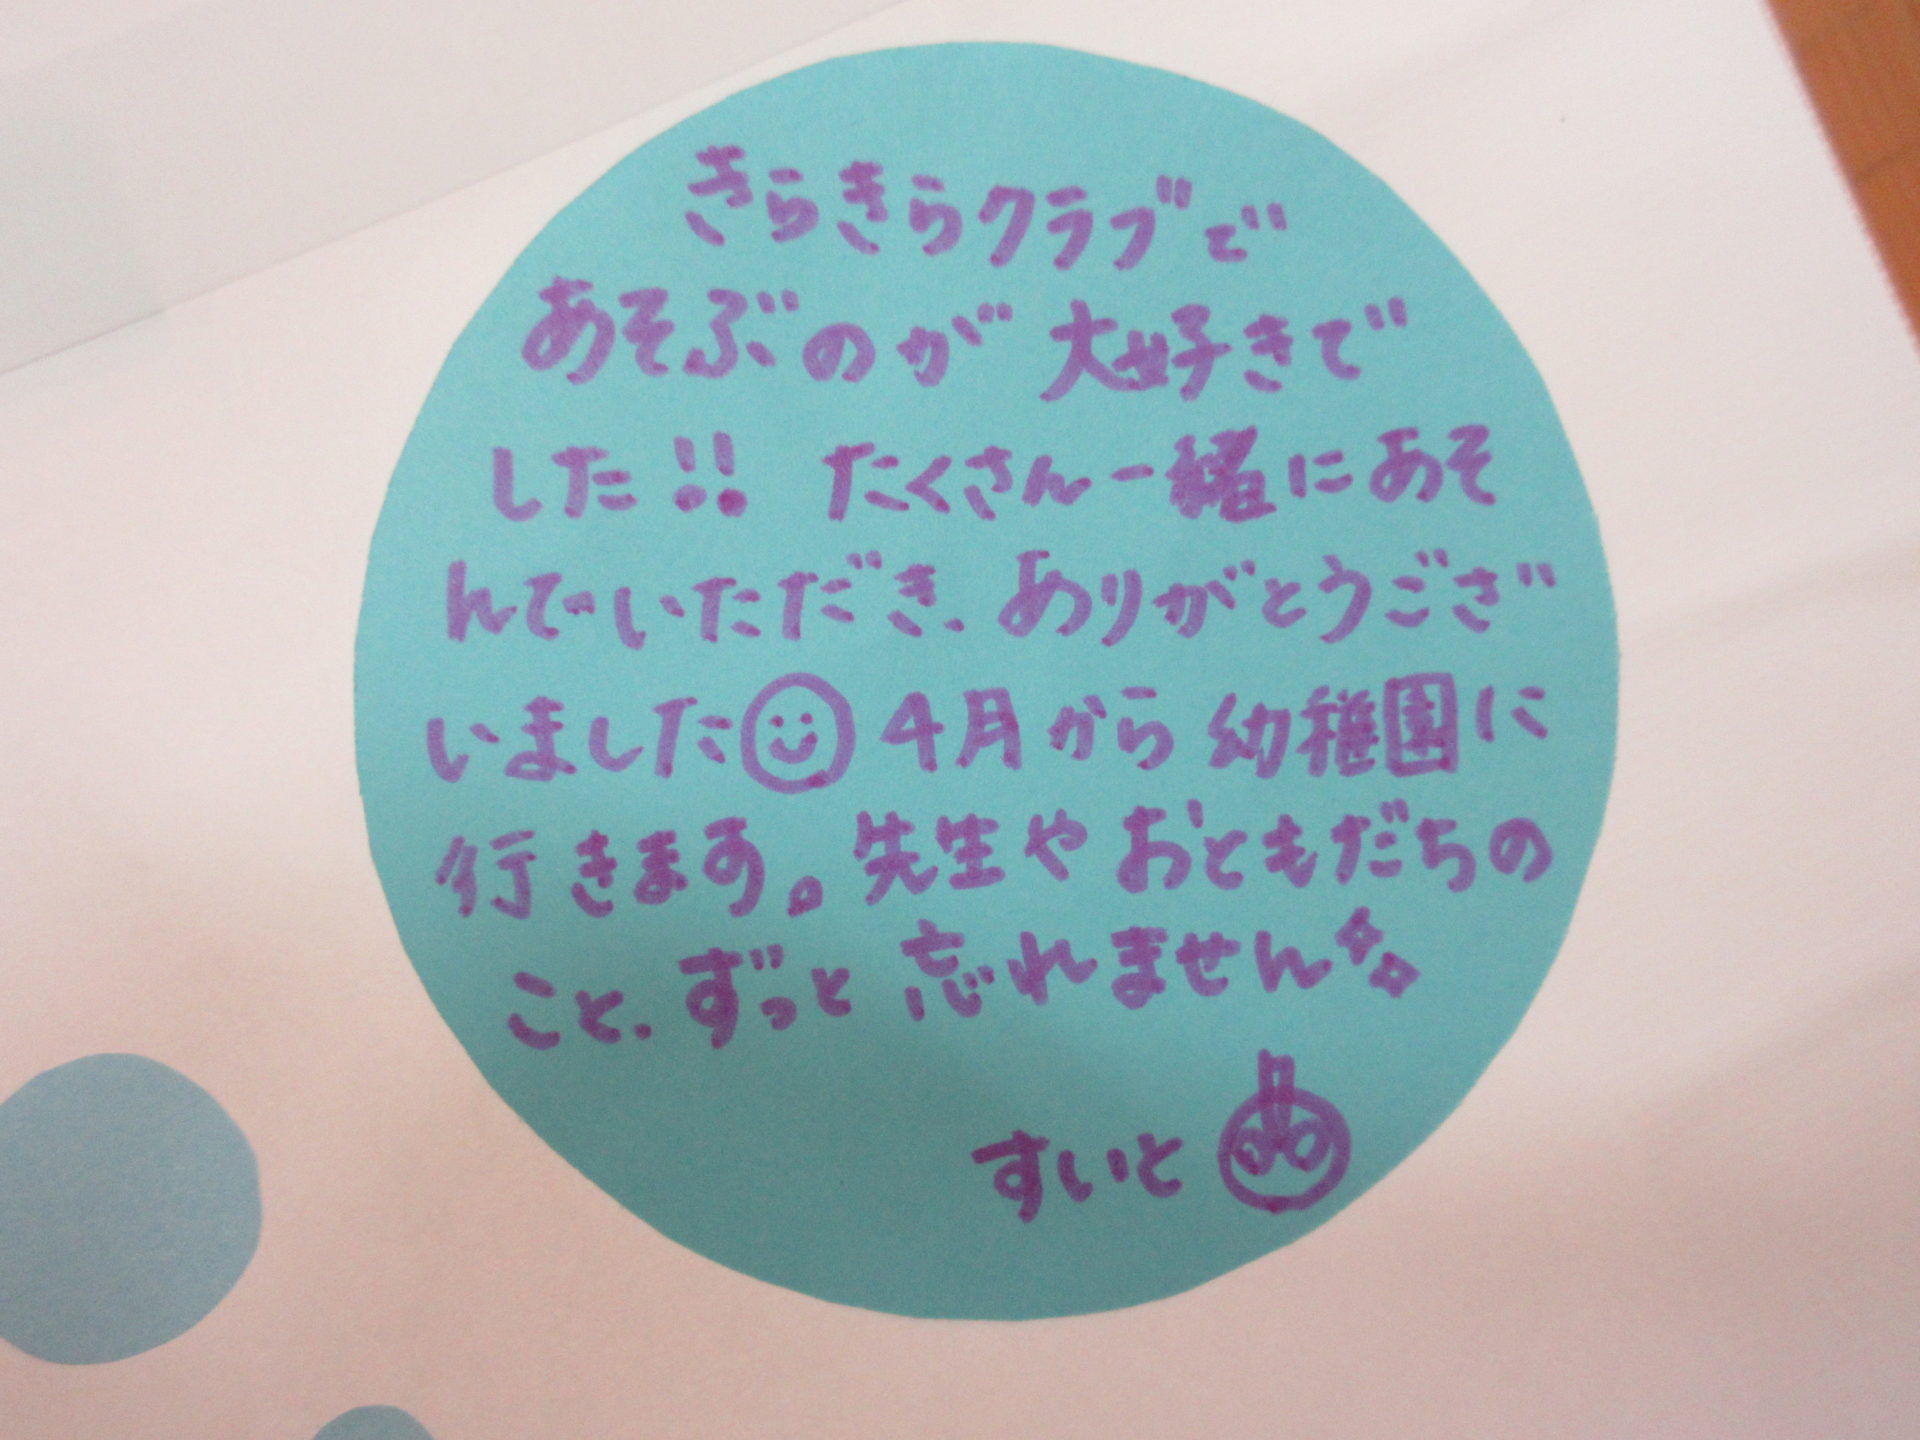 きらきらクラブで
あそぶのが 大好きで
した!! たくさん一緒にあそ
んでいただき、ありがとうござ
いました☺ 4月から 幼稚園に
行きます。先生や おともだちの
こと、ずっと 忘れません✨
すいと